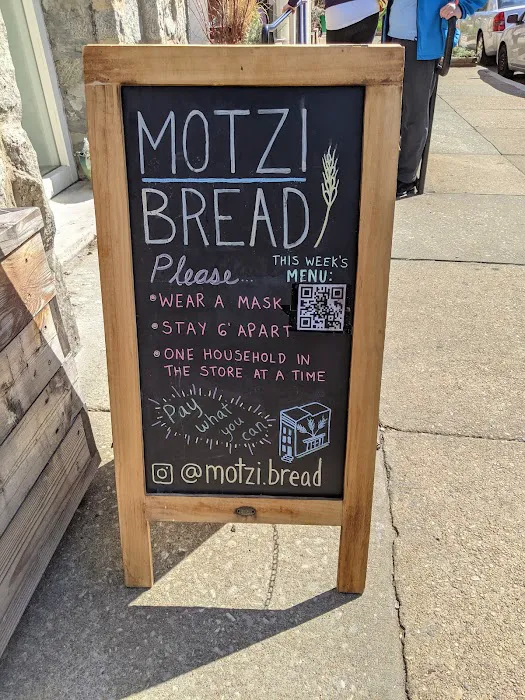 MOTZI
BREAD
Please...
THIS WEEK'S
MENU:
• WEAR A MASK
• STAY 6' APART
• ONE HOUSEHOLD IN
THE STORE AT A TIME
Pay
what
you
can
@motzi.bread